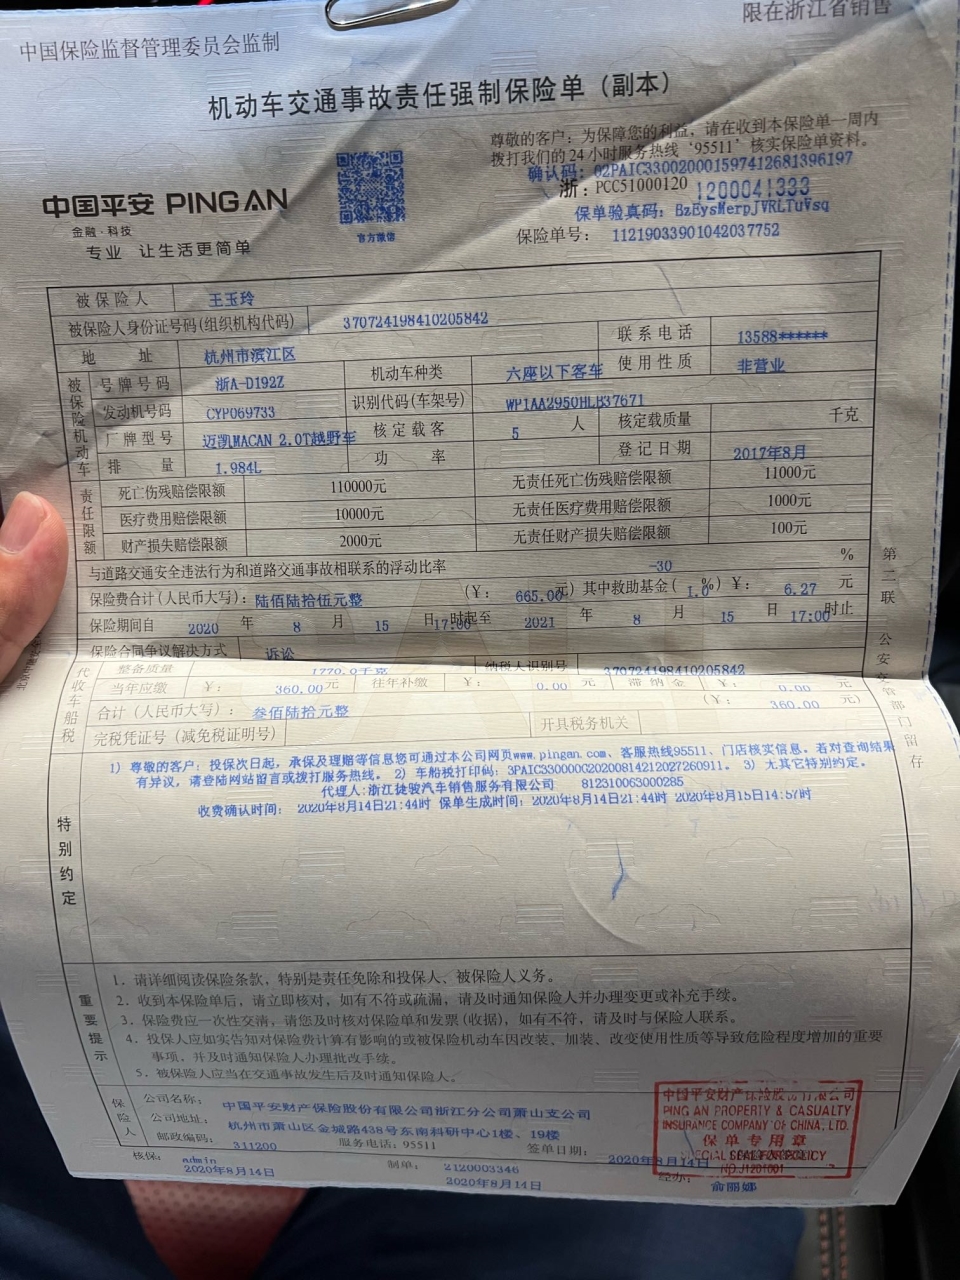 中国保险监督管理委员会监制
限在浙江省销售
机动车交通事故责任强制保险单（副本）
尊敬的客户：为保障您的利益，请在收到本保险单一周内
拨打我们的24小时服务热线‘95511’核实保险单资料。
确认码：02PAIC330020001597412681396197
浙：PCC51000120 1200041333
保单验真码：BzEysMerpJVRLTuVsq
保险单号：11219033901042037752
中国平安 PING AN
金融·科技
专业 让生活更简单
官方微信
被保险人 王玉玲
被保险人身份证号码(组织机构代码) 370724198410205842
地 址 杭州市滨江区 联系电话 13588******
被保险机动车
号牌号码 浙A-D192Z 机动车种类 六座以下客车 使用性质 非营业
发动机号码 CYP069733 识别代码(车架号) WP1AA2950HLB37671
厂牌型号 迈凯MACAN 2.0T越野车 核定载客 5 人 核定载质量 千克
排 量 1.984L 功 率 登记日期 2017年8月
责任限额
死亡伤残赔偿限额 110000元 无责任死亡伤残赔偿限额 11000元
医疗费用赔偿限额 10000元 无责任医疗费用赔偿限额 1000元
财产损失赔偿限额 2000元 无责任财产损失赔偿限额 100元
与道路交通安全违法行为和道路交通事故相联系的浮动比率 -30 %
保险费合计(人民币大写)：陆佰陆拾伍元整 (￥： 665.00元) 其中救助基金( 1.0%) ￥： 6.27 元
保险期间自 2020 年 8 月 15 日 17:00时起至 2021 年 8 月 15 日 17:00时止
保险合同争议解决方式 诉讼
代收车船税
整备质量 1770.0千克 纳税人识别号 370724198410205842
当年应缴 ￥： 360.00元 往年补缴 ￥： 0.00 元 滞纳金 ￥： 0.00 元
合计(人民币大写)： 叁佰陆拾元整 (￥： 360.00 元)
完税凭证号（减免税证明号） 开具税务机关
第二联 公安交管部门留存
特别约定
1) 尊敬的客户：投保次日起，承保及理赔等信息您可通过本公司网页www.pingan.com、客服热线95511、门店核实信息。若对查询结果
有异议，请登陆网站留言或拨打服务热线。 2) 车船税打印码：3PAIC330000C20200814212027260911。 3) 无其它特别约定。
代理人:浙江捷骏汽车销售服务有限公司 812310063000285
收费确认时间： 2020年8月14日21:44时 保单生成时间：2020年8月14日21:44时 2020年8月15日14:57时
重要提示
1. 请详细阅读保险条款，特别是责任免除和投保人、被保险人义务。
2. 收到本保险单后，请立即核对，如有不符或疏漏，请及时通知保险人并办理变更或补充手续。
3. 保险费应一次性交清，请您及时核对保险单和发票(收据)，如有不符，请及时与保险人联系。
4. 投保人应如实告知对保险费计算有影响的或被保险机动车因改装、加装、改变使用性质等导致危险程度增加的重要
事项，并及时通知保险人办理批改手续。
5. 被保险人应当在交通事故发生后及时通知保险人。
保险人
公司名称： 中国平安财产保险股份有限公司浙江分公司萧山支公司
公司地址： 杭州市萧山区金城路438号东南科研中心1楼、19楼
邮政编码： 311200 服务电话：95511 签单日期： 2020年8月14日
核保： admin 制单： 2120003346 经办： 俞丽娜
2020年8月14日 2020年8月14日
中国平安财产保险股份有限公司
PING AN PROPERTY & CASUALTY
INSURANCE COMPANY OF CHINA, LTD.
保单专用章
SPECIAL SEAL FOR POLICY
NO.J1201001